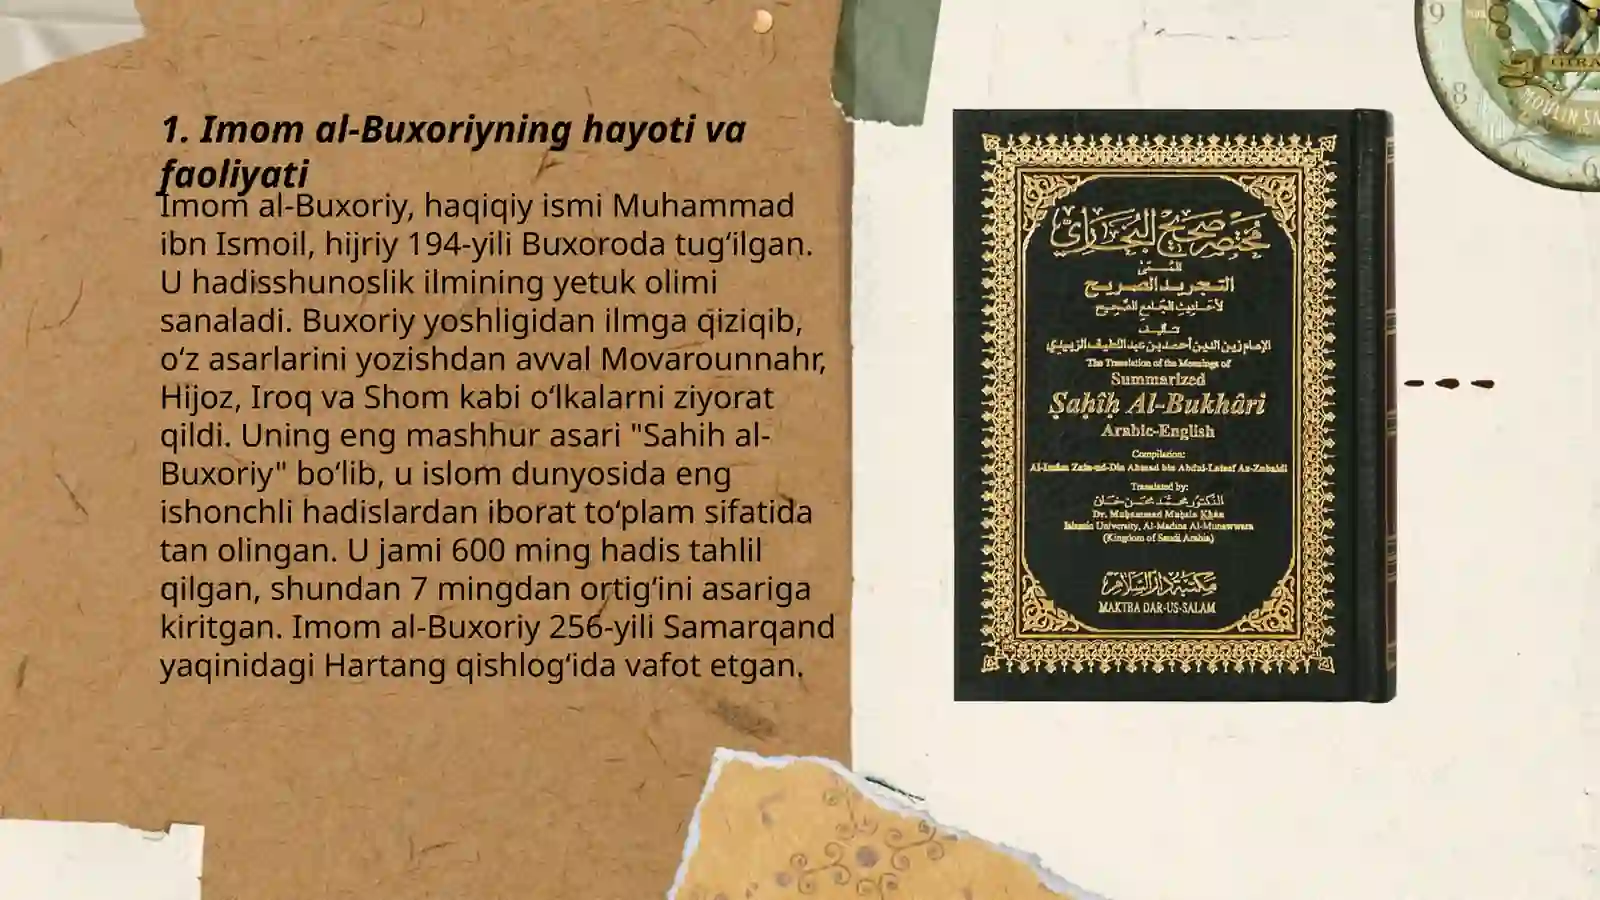 1. Imom al-Buxoriyning hayoti va
faoliyati
Imom al-Buxoriy, haqiqiy ismi Muhammad
ibn Ismoil, hijriy 194-yili Buxoroda tugʻilgan.
U hadisshunoslik ilmining yetuk olimi
sanaladi. Buxoriy yoshligidan ilmga qiziqib,
oʻz asarlarini yozishdan avval Movarounnahr,
Hijoz, Iroq va Shom kabi oʻlkalarni ziyorat
qildi. Uning eng mashhur asari "Sahih al-
Buxoriy" boʻlib, u islom dunyosida eng
ishonchli hadislardan iborat toʻplam sifatida
tan olingan. U jami 600 ming hadis tahlil
qilgan, shundan 7 mingdan ortigʻini asariga
kiritgan. Imom al-Buxoriy 256-yili Samarqand
yaqinidagi Hartang qishlogʻida vafot etgan.
مختصر صحيح البخاري
المسمى
التجريد الصريح
لأحاديث الجامع الصحيح
تأليف
الإمام زين الدين أحمد بن عبد اللطيف الزبيدي
The Translation of the Meanings of
Summarized
Ṣaḥîḥ Al-Bukhâri
Arabic-English
Compilation:
Al-Imâm Zain-ud-Din Ahmad bin Abdul-Lateef Az-Zubaidi
Translated by:
الدكتور محمد محسن خان
Dr. Muhammad Muhsin Khan
Islamic University, Al-Madina Al-Munawwara
(Kingdom of Saudi Arabia)
مكتبة دار السلام
MAKTBA DAR-US-SALAM
9
8
MOULIN